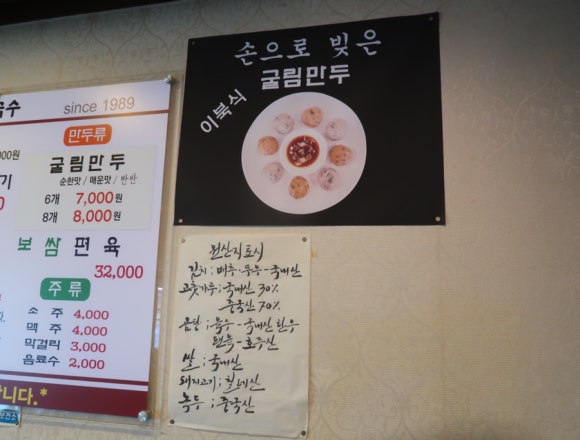 국수
since 1989
만두류
굴림만두
순한맛 / 매운맛 / 반반
6개 7,000원
8개 8,000원
보쌈편육
32,000
주류
소주 4,000
맥주 4,000
막걸리 3,000
음료수 2,000
니다.*
손으로 빚은
굴림만두
이북식
원산지표시
김치 ; 배추 · 무우 - 국내산
고춧가루 ; 국내산 30%
중국산 70%
곰탕 ; 육수 - 국내산 한우
편육 - 호주산
쌀 ; 국내산
돼지고기 ; 칠레산
녹두 ; 중국산